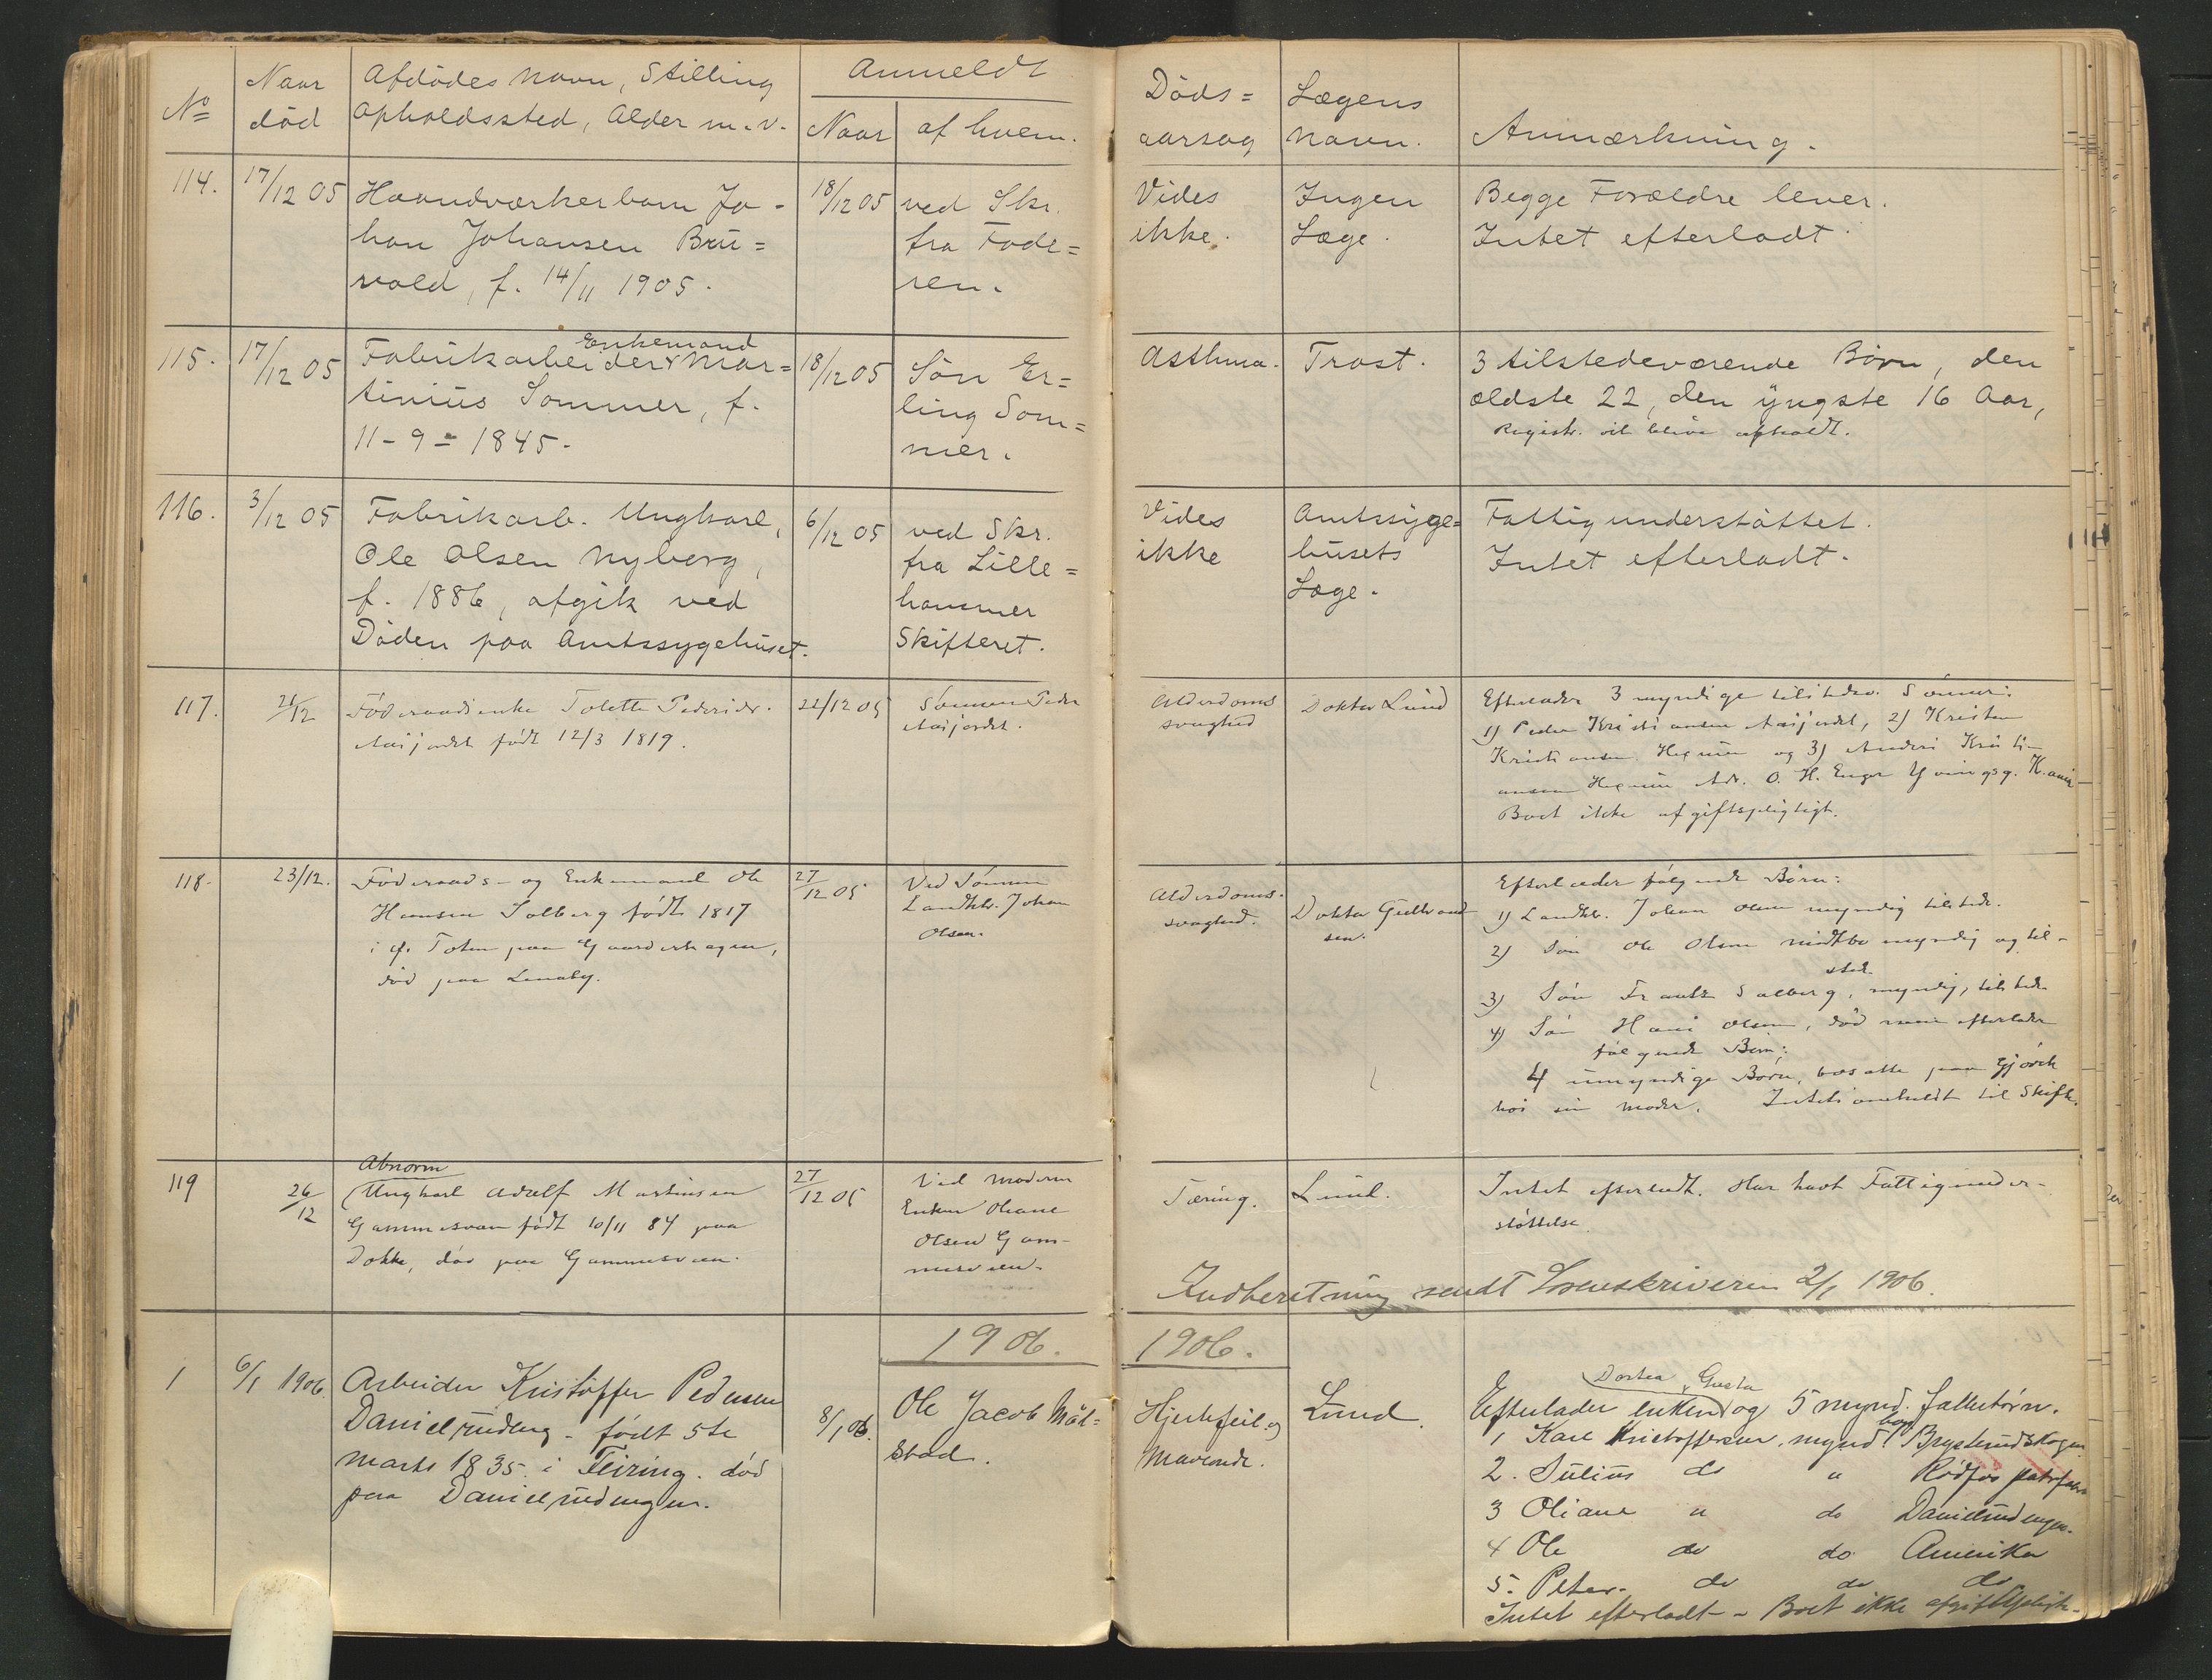 No
Naar
død
Afdødes Navn, Stilling
Opholdssted, Alder m.v.
Anmeldt
Naar
af hvem.
Døds=
aarsag
Lægens
Navn.
Anmærkning.
114.
17/12 05
Haandværkerbarn Jo-
han Johansen Bru=
vold, f. 14/11 1905.
18/12 05
ved Skr.
fra Fade=
ren.
Vides
ikke.
Ingen
Læge.
Begge Forældre lever.
Intet efterladt.
115.
17/12 05
Enkemand
Fabrikarbeider Mar=
tinius Sommer, f.
11-9-1845.
18/12 05
Søn Er=
ling Som=
mer.
Asthma.
Trost.
3 tilstedeværende Børn, den
ældste 22, den yngste 16 Aar,
Registr. vil blive afholdt.
116.
3/12 05
Fabrikarb. Ungkarl,
Ole Olsen Nyberg,
f. 1886, afgik ved
Døden paa Amtssygehuset.
6/12 05
ved Skr.
fra Lille=
hammer
Skifteret.
Vides
ikke
Amtssyge=
husets
Læge.
Fattigunderstøttet.
Intet efterladt.
117.
21/12
Føderaadsenke Tolette Pedersdr.
født 12/3 1819.
22/12 05
Sønnen Peder
Alderdoms
svaghed
Doktor Lund
Efterlader 3 myndige tilstedev. Sønner:
1) Peder Kristiansen 2) Kristian
Kristiansen og 3) Anders Kristi-
ansen Adr. O. H. Enger
Boet ikke afgiftspligtigt.
118.
23/12.
Føderaads- og Enkemand Ole
Hansen Solberg født 1817
i Ø. Toten paa Gaarderhagen,
død paa Lenaby.
27/12 05
Ved Sønnen
Landhdl. Johan
Olsen.
Alderdoms-
svaghed.
Doktor Gulbrand
sen.
Efterlader følgende Børn:
1) Landhdl. Johan Olsen myndig tilstede.
2) Søn Ole Olsen myndig og til-
stede.
3) Søn Frantz Solberg, myndig, tilstede
4) Søn Hans Olsen, død som efterlader
følgende Børn:
4 umyndige Børn, bosatte paa Gjøvik
hos sin Moder. Intet anmeldt til Skifte.
119
26/12
Abnorm
Ungkarl Adolf Martinsen
Gammesveen født 10/11 84 paa
Dokke, død paa Gammesveen.
27/12 05
Ved Moderen
Enken Oleane
Olsen Gam-
mesveen.
Tæring.
Lund.
Intet efterladt. Har havt Fattigunder-
støttelse.
Indberetning sendt Sorenskriveren 2/1 1906.
1906.
1906.
1
6/1 1906.
Arbeider Kristoffer Pedersen
Danielrudeng. født 5te
Marts 1835 i Feiring. død
paa Danielrudengen.
8/1 06.
Ole Jacob Møl=
stad.
Hjertefeil og
Mavevonde.
Lund.
Dortea Gusta
Efterlader enken og 5 mynd. fællesbørn.
1 Karl Kristoffersen, mynd. bop. Brystrudskogen
2. Julius do " Rødfos patronfabr.
3 Oliane " do Danielrudengen.
4 Ole do do Amerika
5. Peter. do do do
Intet efterladt - Boet ikke afgiftspligtig.